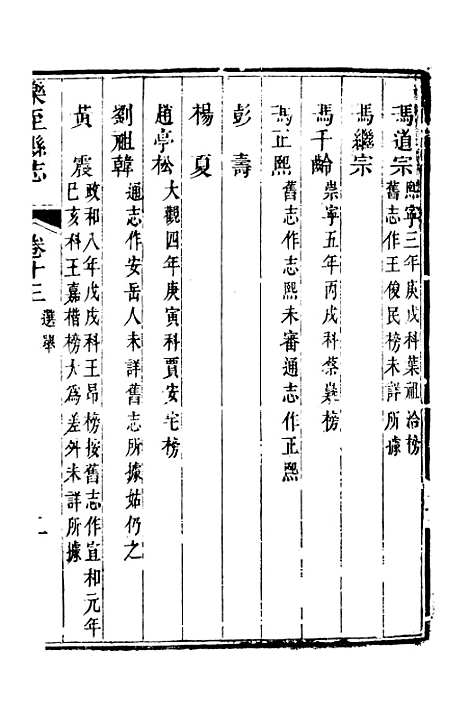 馮道宗熙寧三年庚戌科葉祖洽榜
舊志作王俊民榜未詳所據
馮繼宗
馮千齡崇寧五年丙戌科蔡嶷榜
馮正熙舊志作志熙未審通志作正熙
彭壽
楊夏
趙亭松大觀四年庚寅科賈安宅榜
劉祖韓通志作安岳人未詳舊志所據姑仍之
黃震政和八年戊戌科王昂榜按舊志作宣和元年
己亥科王嘉楷榜大為差外未詳所據
樂至縣志
卷十三
選舉
二